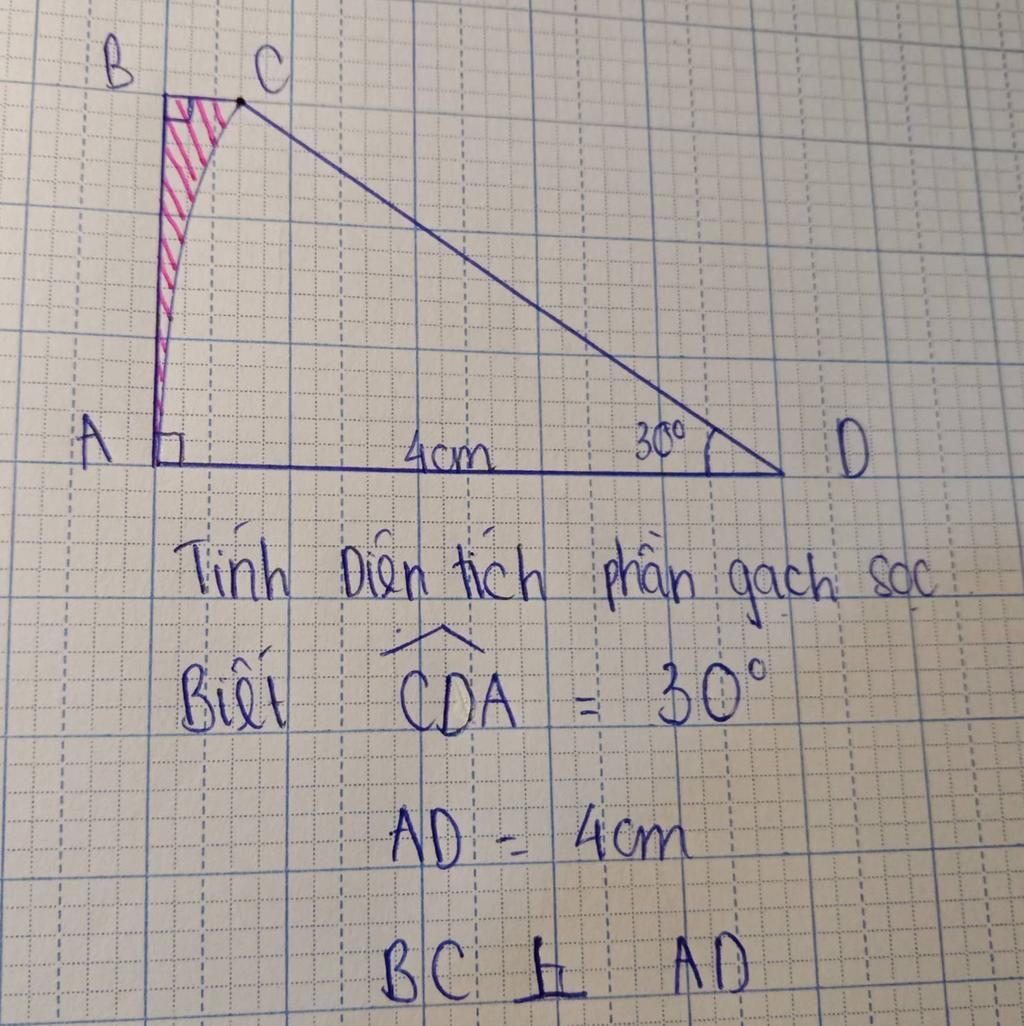 B C
A 4cm 30° D
Tính Diện tích phần gạch sọc
Biết CDA = 30°
AD = 4cm
BC ⊥ AD